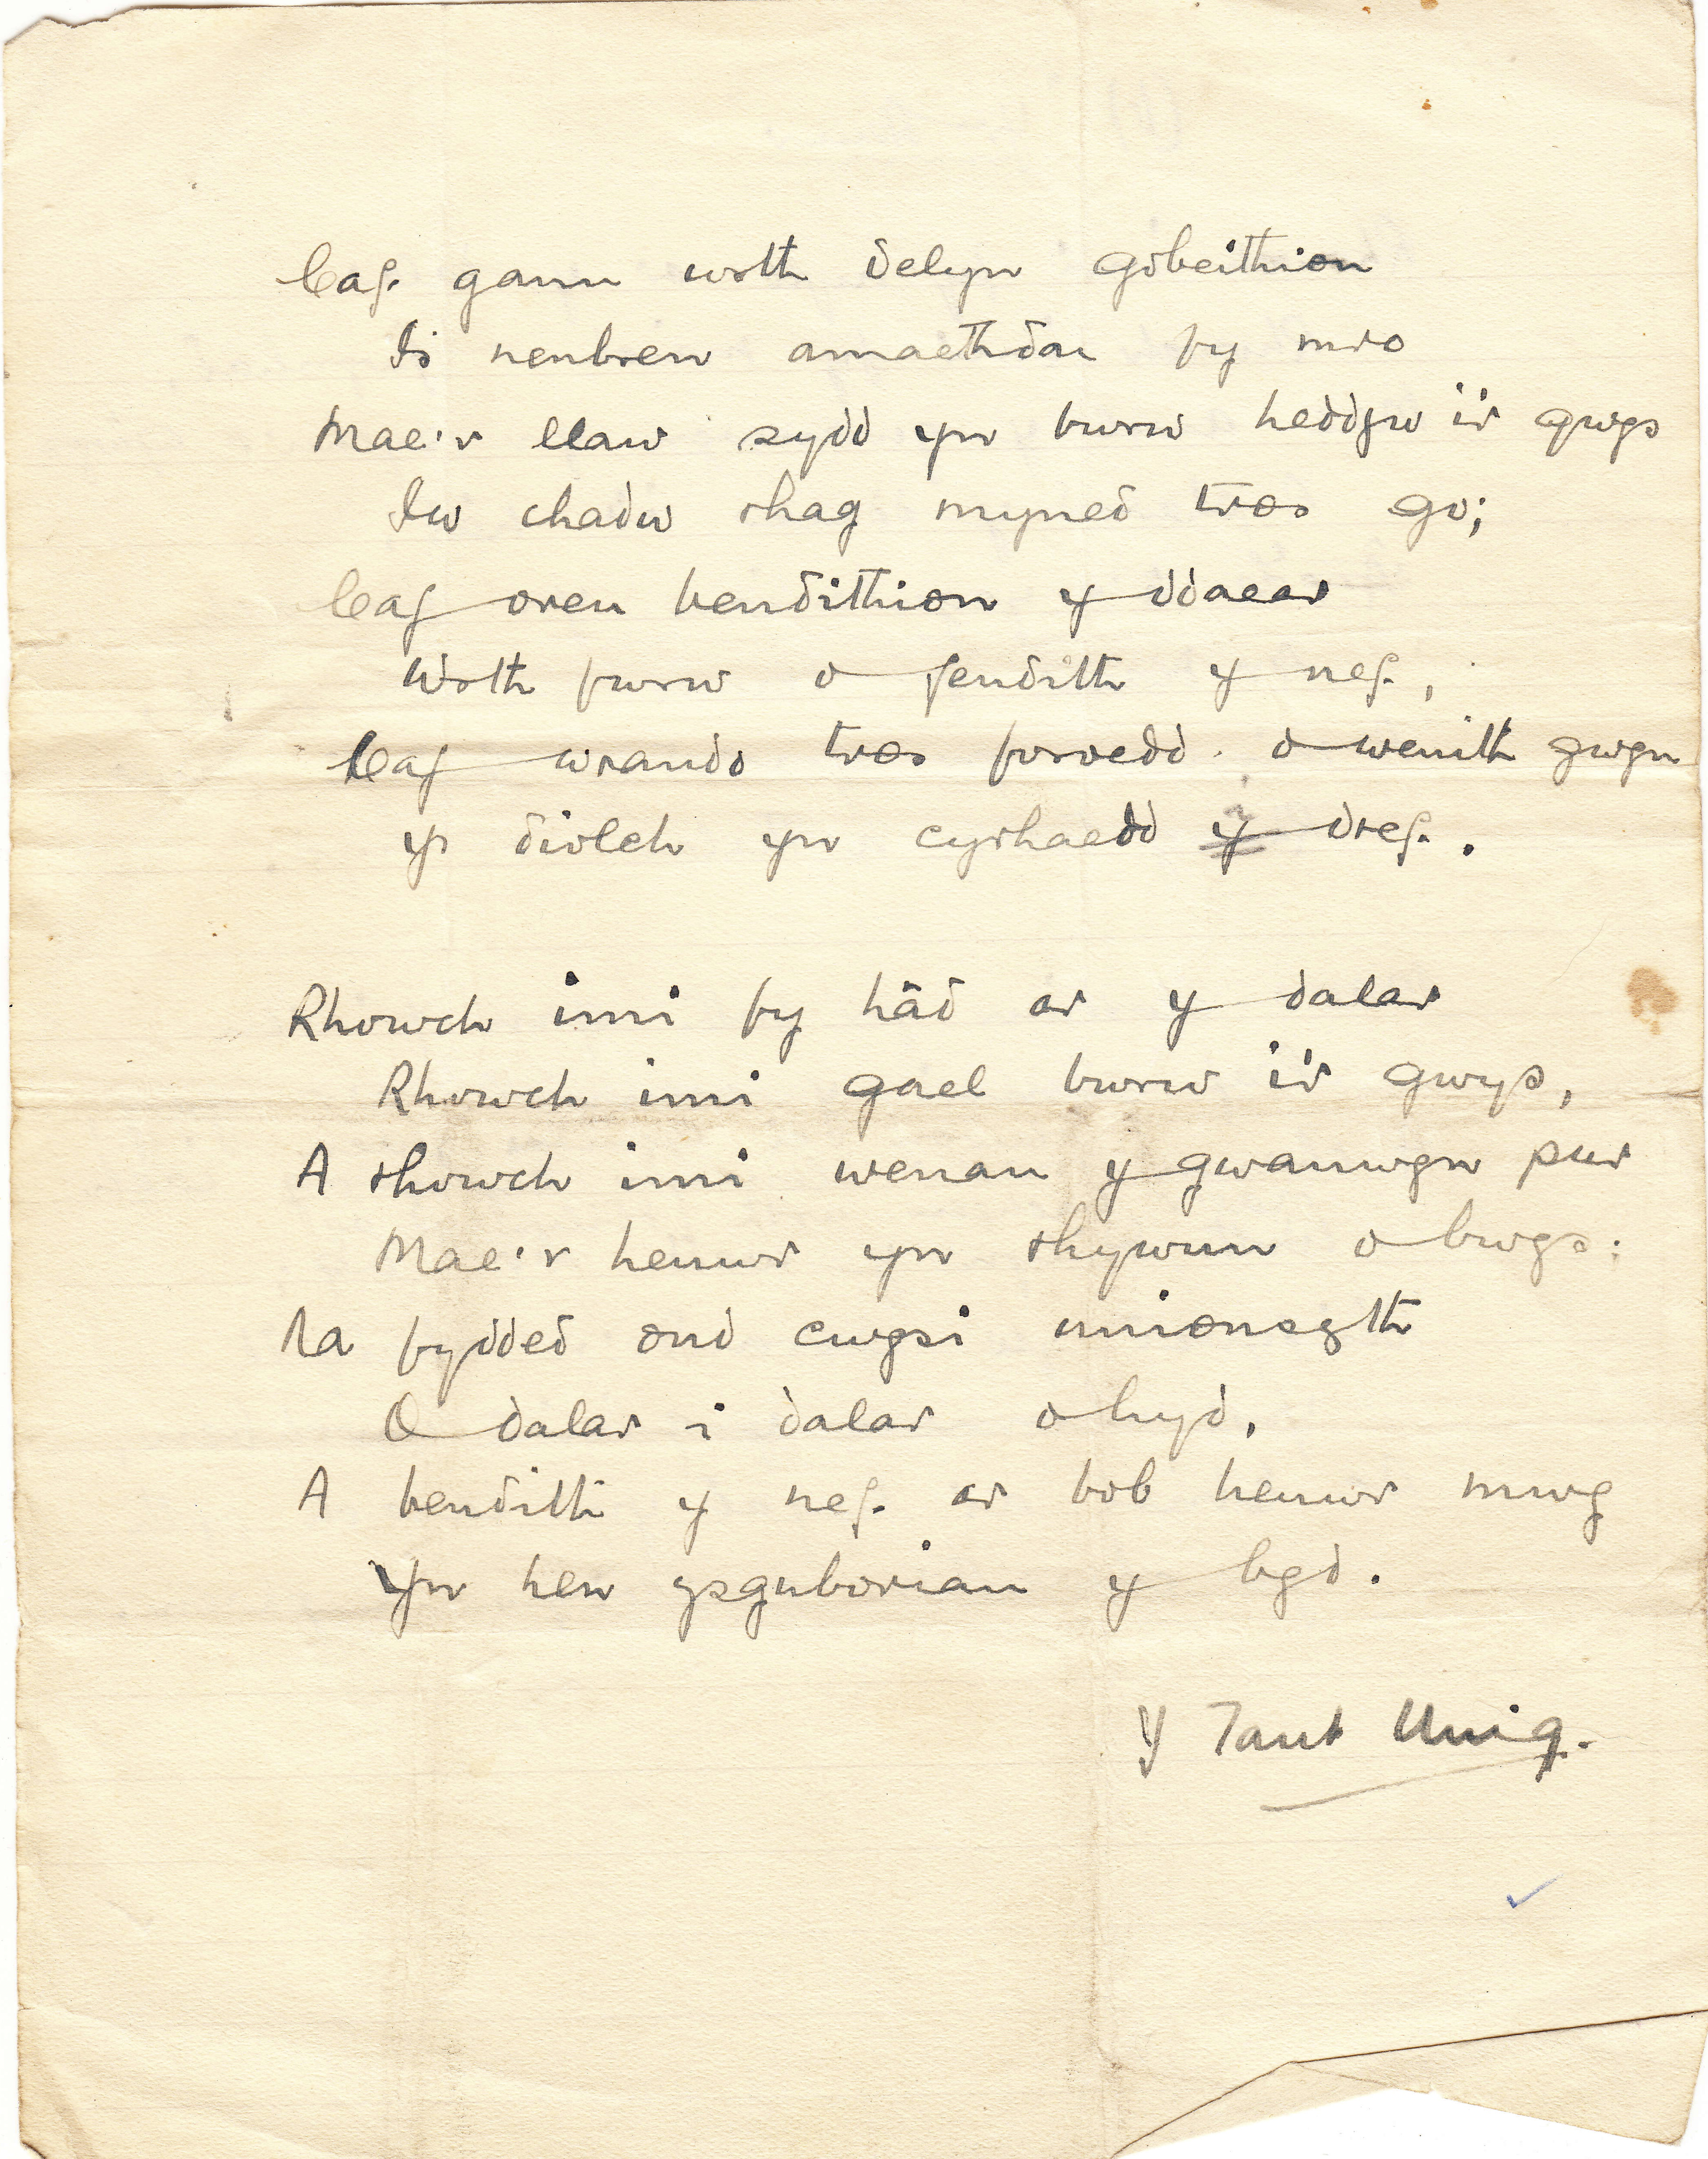 Caf ganu wrth delyn gobeithion
Is nenbren amaethdai fy mro
Mae'r llaw sydd yn bwrw heddyw i'r gwys
Iw chadw rhag myned tros go;
Caf oreu bendithion y ddaear
Wrth fwrw o fendith y nef,
Caf wrando tros foroedd o wenith gwyn
Yr diolch yn cyrhaedd i dref.
Rhowch imi fy hâd ar y dalar
Rhowch imi gael bwrw i'r gwys,
A rhowch imi wenau y gwanwyn pur
Mae'r heuwr yn rhywun o bwys:
Na fydded ond cwysi unionsyth
O dalar i dalar o hyd,
A bendith y nef ar bob heuwr mwy
Yn hen ysguboriau y byd.
Y Tant Unig.